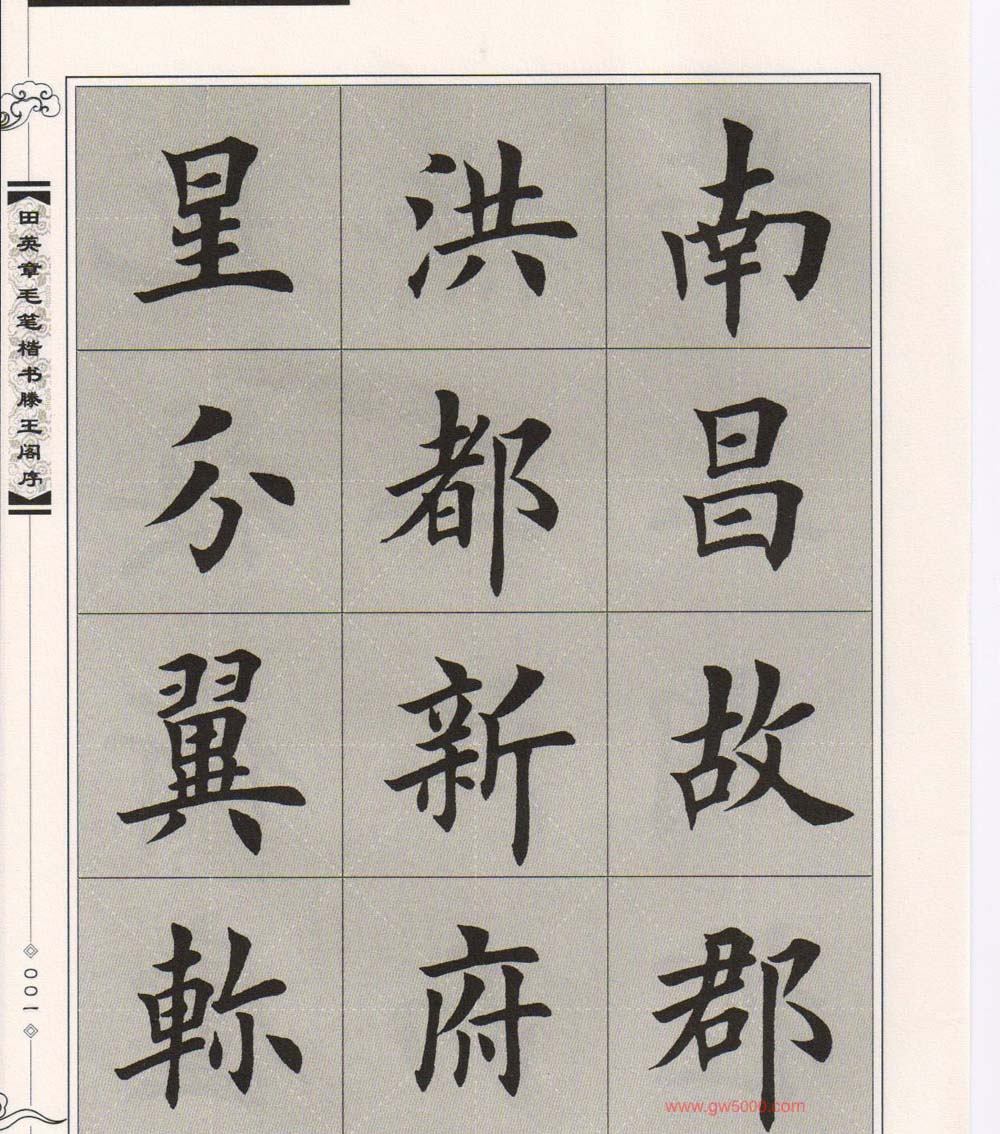 南昌故郡
洪都新府
星分翼軫
田英章毛笔楷书滕王阁序
001
www.gw5000.com